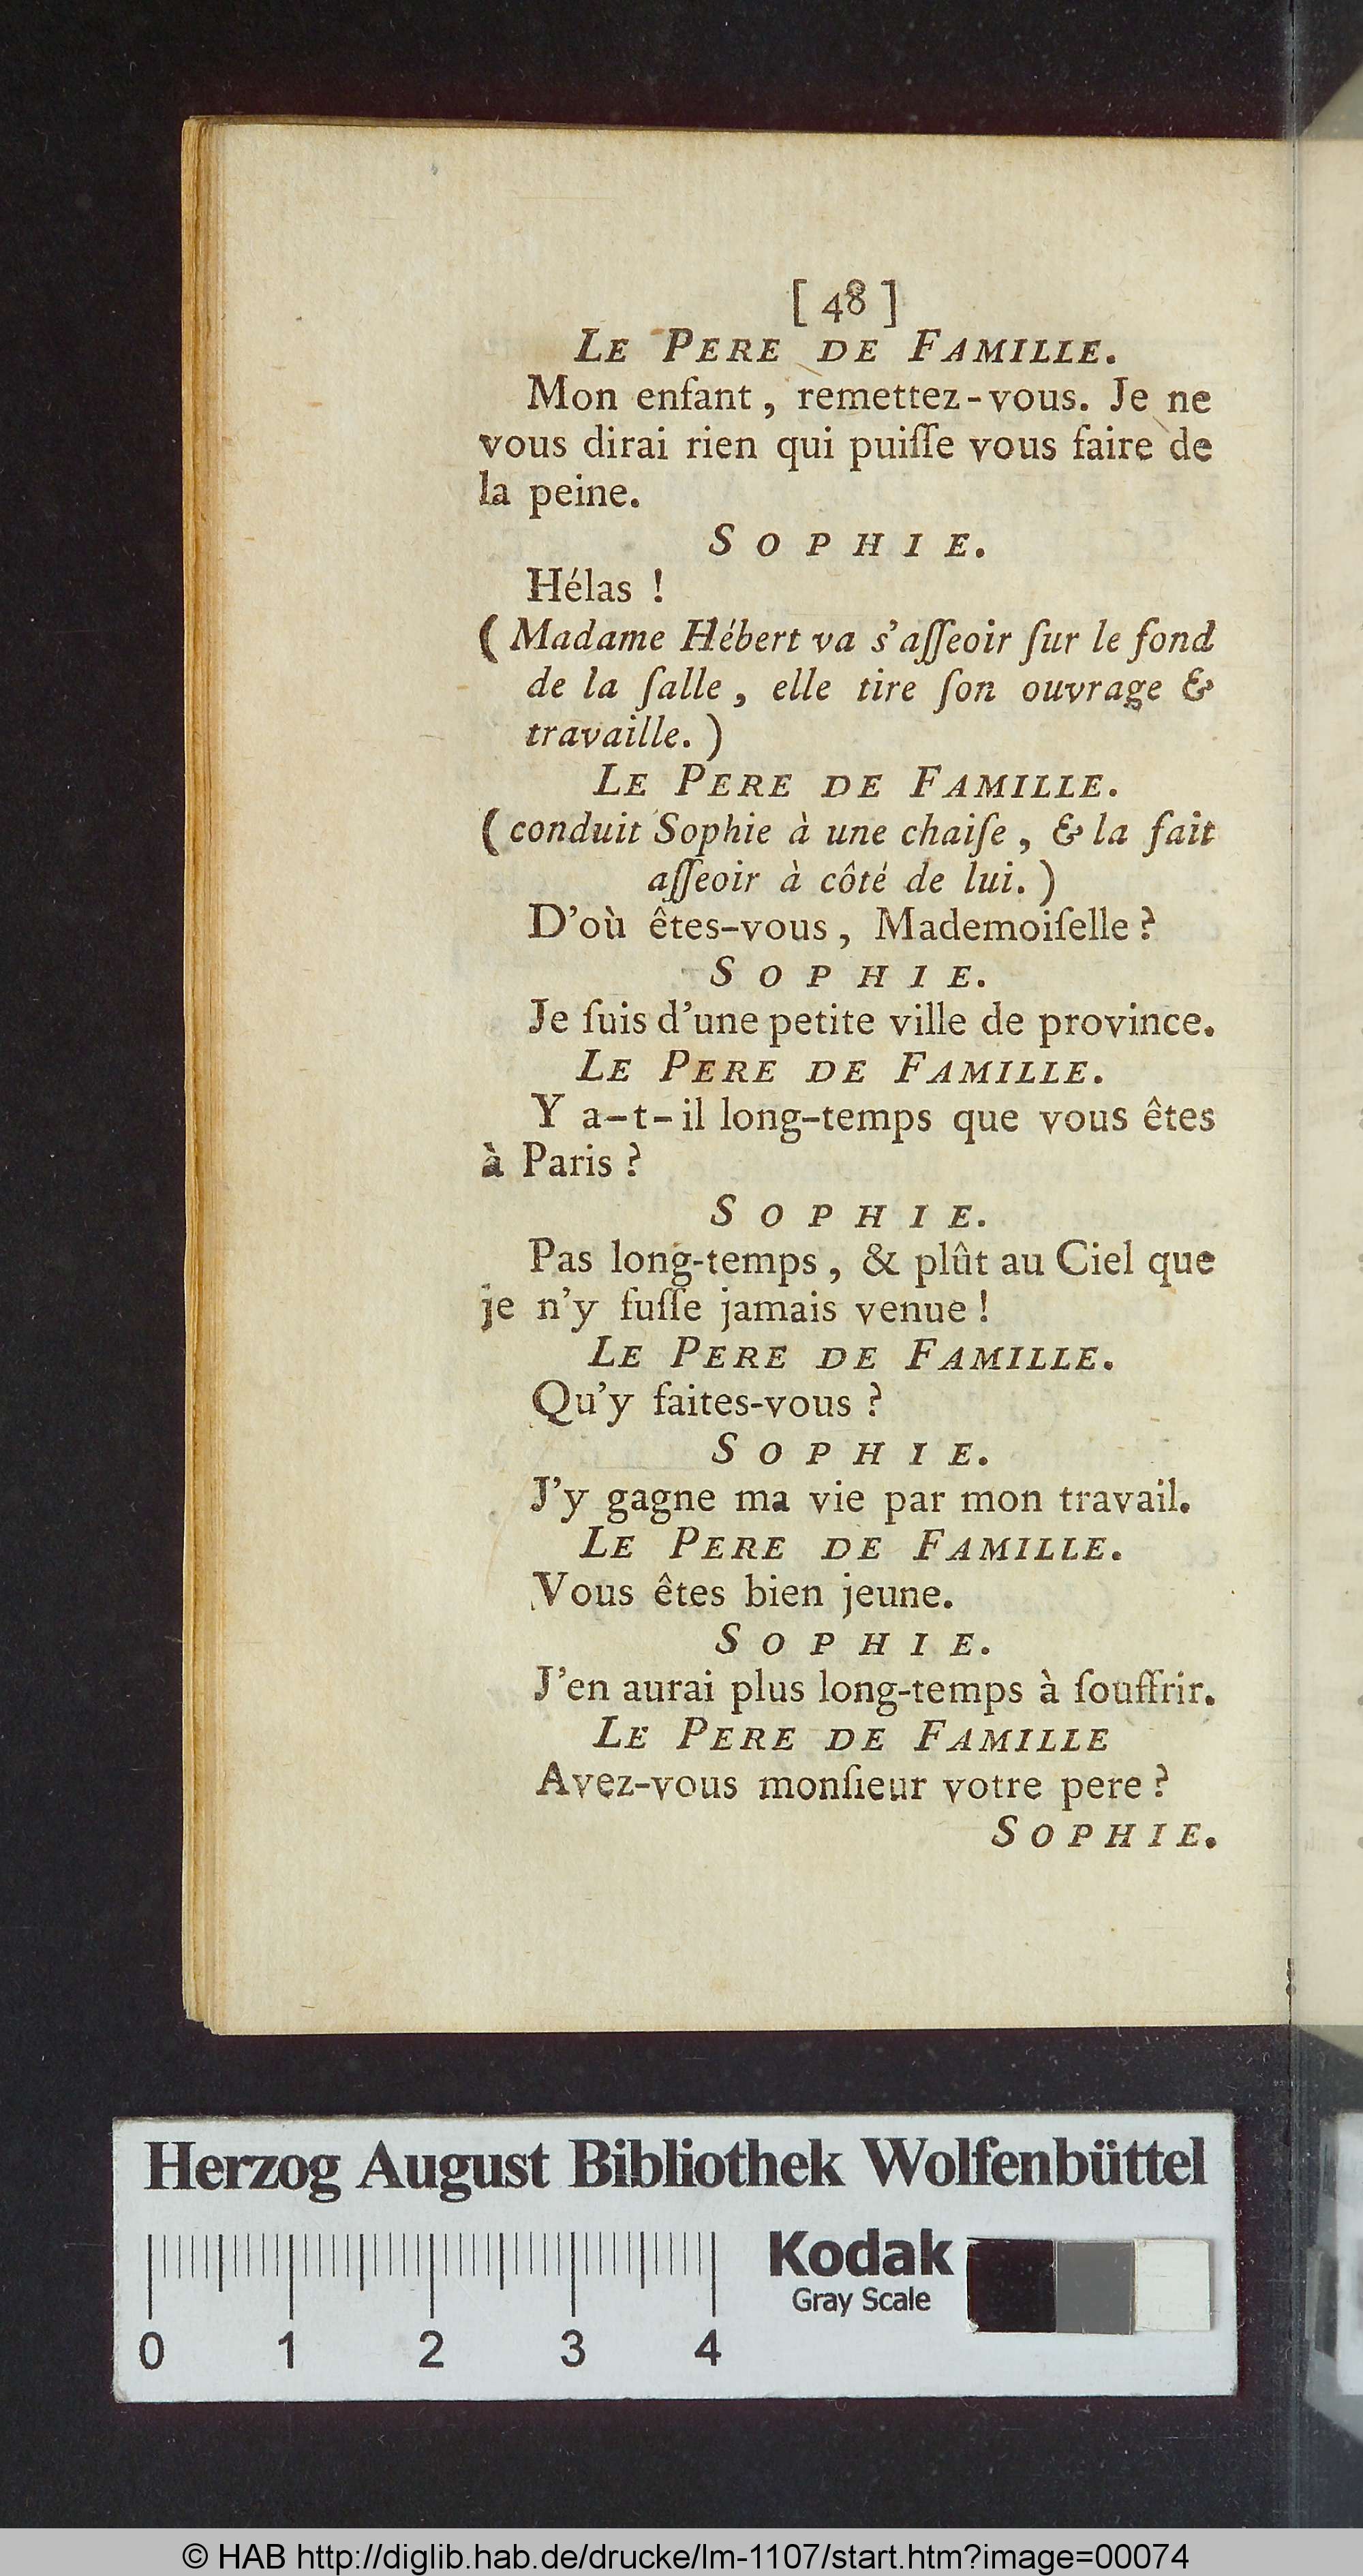 [ 48 ]
LE PERE DE FAMILLE.
Mon enfant, remettez-vous. Je ne
vous dirai rien qui puiſſe vous faire de
la peine.
SOPHIE.
Hélas !
( Madame Hébert va s'aſſeoir ſur le fond
de la ſalle, elle tire ſon ouvrage &
travaille. )
LE PERE DE FAMILLE.
( conduit Sophie à une chaiſe, & la fait
aſſeoir à côté de lui. )
D'où êtes-vous, Mademoiſelle ?
SOPHIE.
Je ſuis d'une petite ville de province.
LE PERE DE FAMILLE.
Y a-t-il long-temps que vous êtes
à Paris ?
SOPHIE.
Pas long-temps, & plût au Ciel que
je n'y fuſſe jamais venue !
LE PERE DE FAMILLE.
Qu'y faites-vous ?
SOPHIE.
J'y gagne ma vie par mon travail.
LE PERE DE FAMILLE.
Vous êtes bien jeune.
SOPHIE.
J'en aurai plus long-temps à ſouffrir.
LE PERE DE FAMILLE
Avez-vous monſieur votre pere ?
SOPHIE.
Herzog August Bibliothek Wolfenbüttel
Kodak
Gray Scale
0 1 2 3 4
© HAB http://diglib.hab.de/drucke/lm-1107/start.htm?image=00074